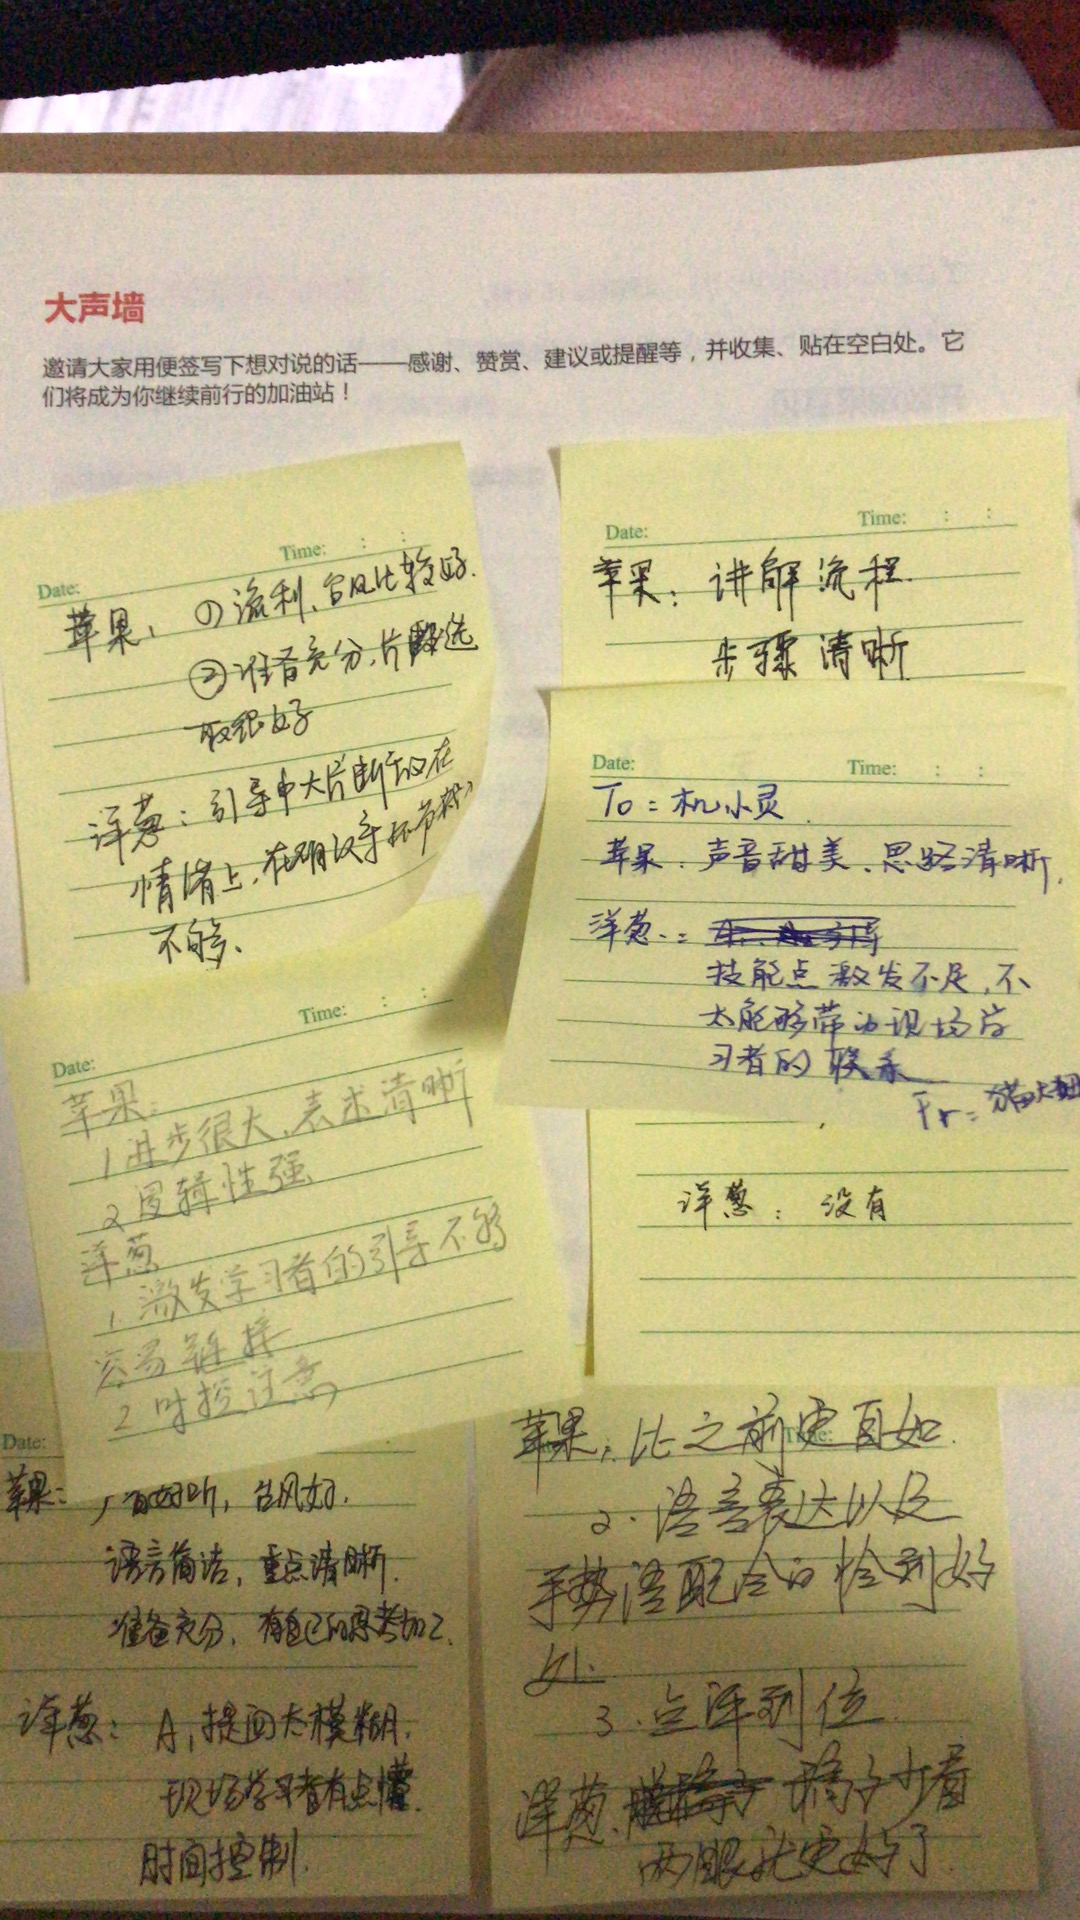 大声墙
邀请大家用便签写下想对说的话——感谢、赞赏、建议或提醒等，并收集、贴在空白处。它
们将成为你继续前行的加油站！
Date: Time: : :
苹果：①流利、台风比较好.
②准备充分、片段选
取很好
洋葱：引导中大片断放在
情绪上、在确认寻环节
不够、
Date: Time: : :
苹果：讲解流程.
步骤清晰
Date: Time: : :
To：机小灵.
苹果：声音甜美、思路清晰.
洋葱：
技能点激发不足,不
太能够带动现场学
习者的联系
Fr：
洋葱：没有
Date: Time: : :
苹果：
1 进步很大、表述清晰
2 逻辑性强
洋葱
1. 激发学习者的引导不够
容易链接
2 时控注意
Date:
苹果：声音好听，台风好.
语言简洁，重点清晰.
准备充分，有自己的思考加工.
洋葱：A, 提问太模糊.
现场学习者有点懵.
时间控制.
Time:
苹果：比之前更自如.
2. 语言表达以及
手势语配合的恰到好
处.
3. 点评到位.
洋葱、稿子少看
两眼就更好了.